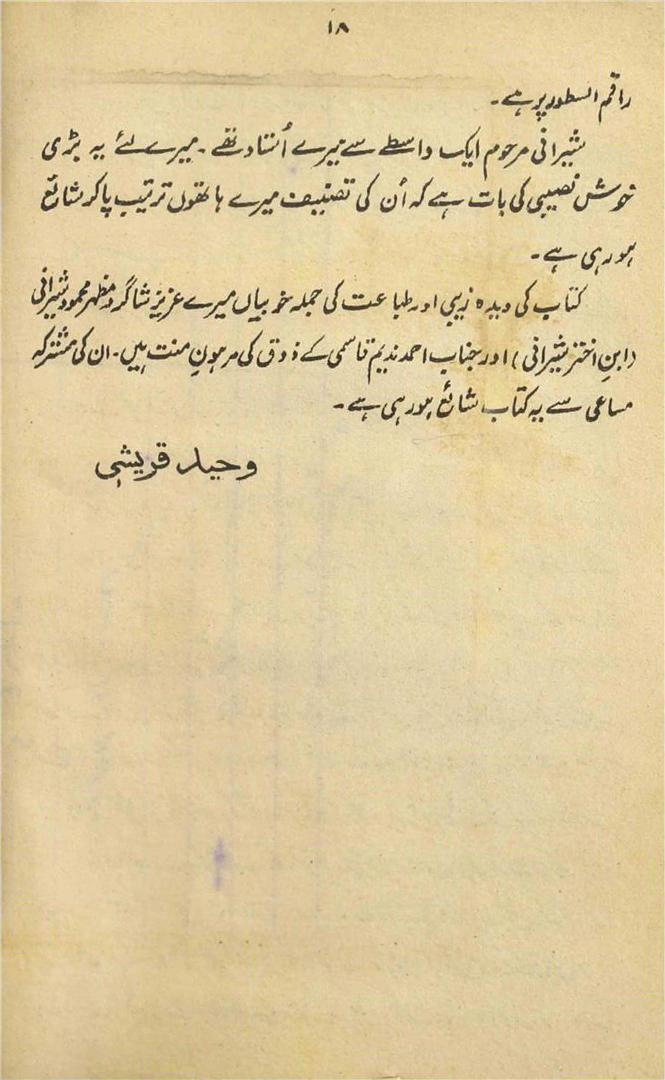 ۱۸
راقم السطور پر ہے۔
شیرانی مرحوم ایک واسطے سے میرے اُستاد تھے۔ میرے لئے یہ بڑی
خوش نصیبی کی بات ہے کہ اُن کی تصنیف میرے ہاتھوں ترتیب پا کر شائع
ہو رہی ہے۔
کتاب کی دیدہ زیبی اور طباعت کی جملہ خوبیاں میرے عزیز شاگرد مظہر محمود شیرانی
(ابنِ اختر شیرانی) اور جناب احمد ندیم قاسمی کے ذوق کی مرہونِ منت ہیں۔ ان کی مشترکہ
مساعی سے یہ کتاب شائع ہو رہی ہے۔
وحید قریشی